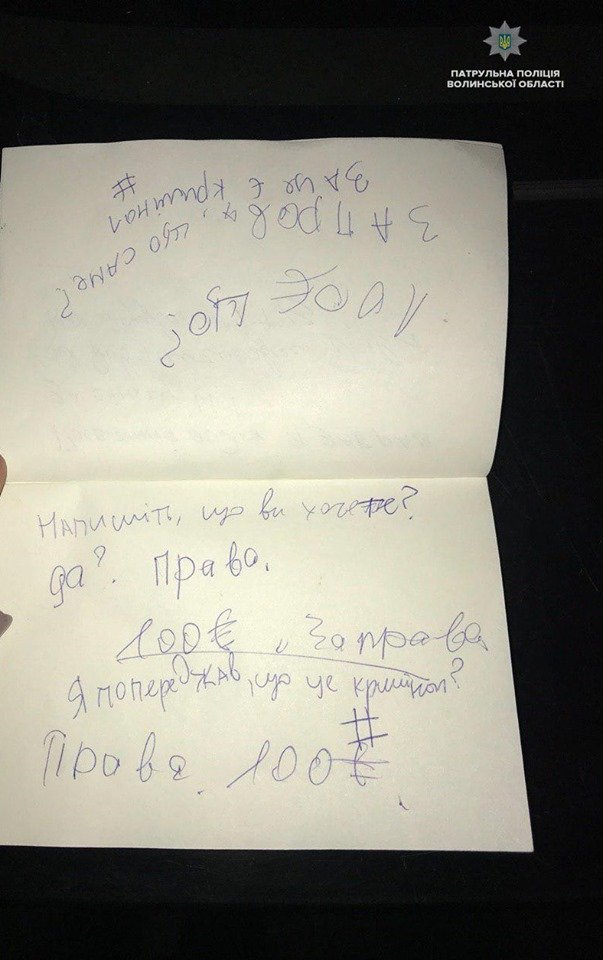 ПАТРУЛЬНА ПОЛІЦІЯ
ВОЛИНСЬКОЇ ОБЛАСТІ
100€ що?
ЗАПРАВА, що саме?
За це є кримінал
#
Напишіть, що ви хочете?
да?. Права.
100€ „ За права
Я попереджав, що це кримінал?
#
Права. 100€.